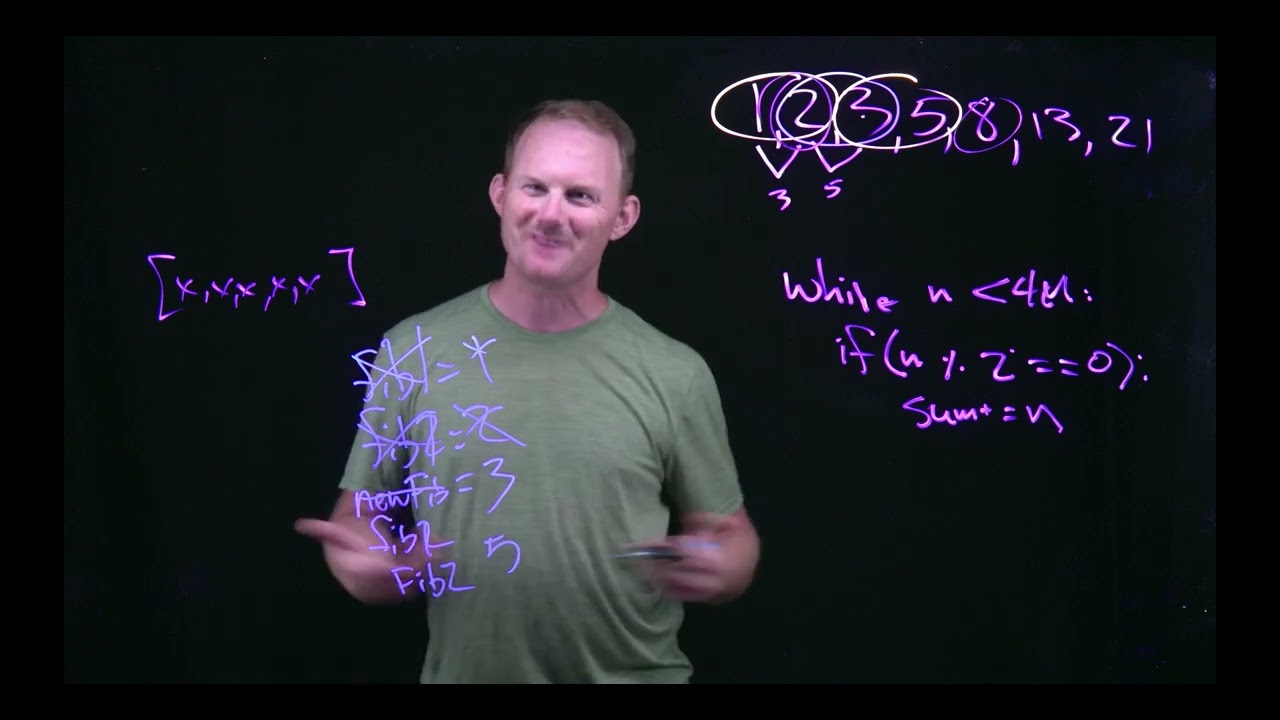 1, 2, 3, 5, 8, 13, 21
3 5
[x,x,x,x,x]
while n < 4M:
if(n % 2 == 0):
sum+=n
fib1 = 1
fib2 = 2
newFib = 3
fib2
Fib2 5